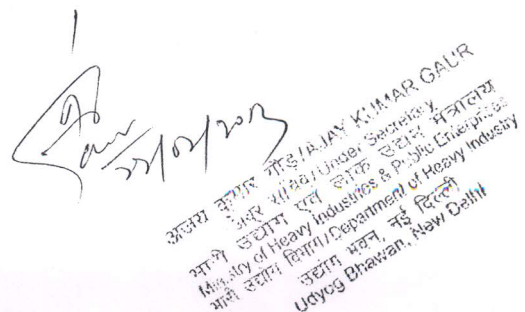 22/02/2013
अजय कुमार गौड़/AJAY KUMAR GAUR
अवर सचिव/Under Secretary
भारी उद्योग एवं लोक उद्यम मंत्रालय
Ministry of Heavy Industries & Public Enterprises
भारी उद्योग विभाग/Department of Heavy Industry
उद्योग भवन, नई दिल्ली
Udyog Bhawan, New Delhi